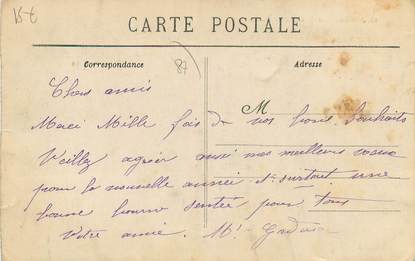 15€
CARTE POSTALE
Correspondance
87
Adresse
M
Chers amis
Merci Mille fois de vos bons souhaits
Veillez agréer aussi mes meilleurs vœux
pour la nouvelle année et surtout une
bonne
santée pour tous
Votre amie.